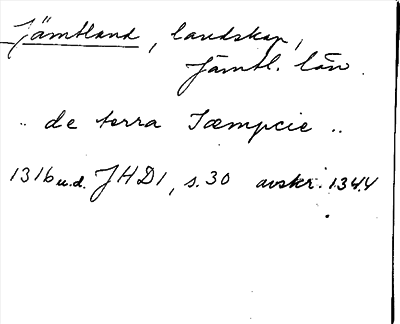 Jämtland, landskap,
Jämtl. län.
.. de terra Jæmpcie ..
1316 u.d. JHD1, s.30 avskr. 1344